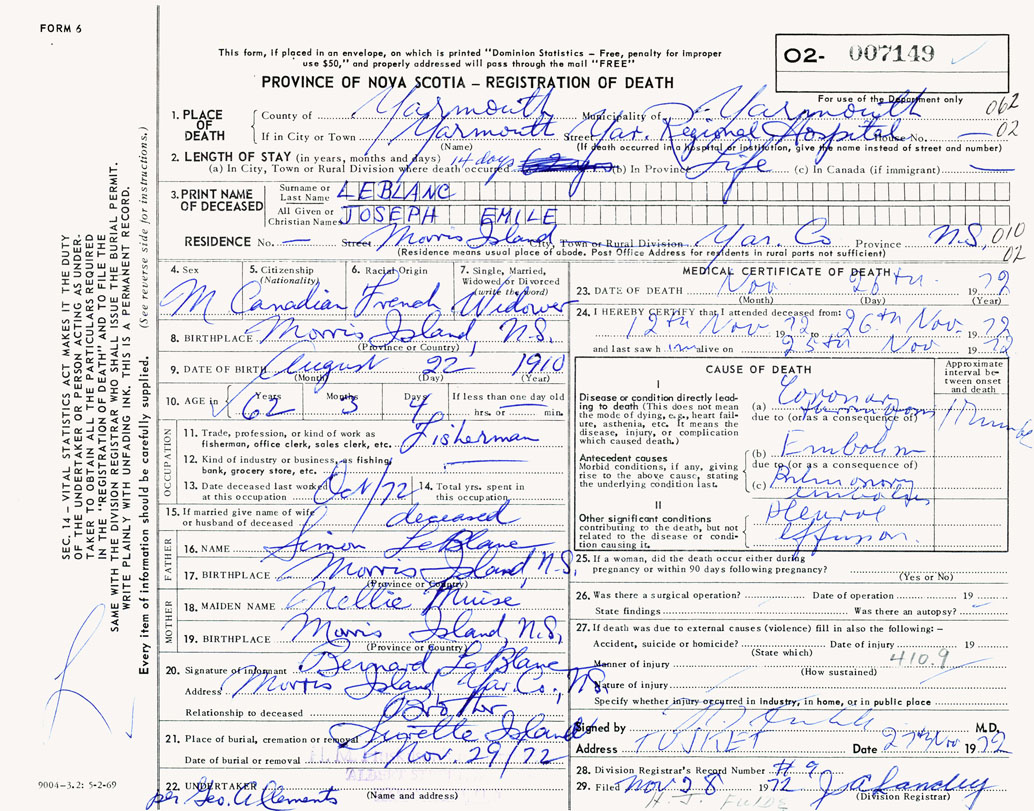 FORM 6
This form, if placed in an envelope, on which is printed "Dominion Statistics – Free, penalty for improper
use $50," and properly addressed will pass through the mail "FREE"
O2- 007149
PROVINCE OF NOVA SCOTIA – REGISTRATION OF DEATH
For use of the Department only
062
02
1. PLACE OF DEATH
County of Yarmouth Municipality of Yarmouth
If in City or Town Yarmouth Street Yar. Regional Hospital House No. —
(Name) (If death occurred in a hospital or institution, give the name instead of street and number)
2. LENGTH OF STAY (in years, months and days)
(a) In City, Town or Rural Division where death occurred 14 days (b) In Province Life (c) In Canada (if immigrant) —
3. PRINT NAME OF DECEASED
Surname or Last Name LEBLANC
All Given or Christian Names JOSEPH EMILE
RESIDENCE No. — Street Morris Island City, Town or Rural Division Yar. Co Province N.S, 010
02
(Residence means usual place of abode. Post Office Address for residents in rural parts not sufficient)
4. Sex M
5. Citizenship (Nationality) Canadian
6. Racial Origin French
7. Single, Married, Widowed or Divorced (write the word) Widower
8. BIRTHPLACE Morris Island, N.S.
(Province or Country)
9. DATE OF BIRTH August 22 1910
(Month) (Day) (Year)
10. AGE in Years 62 Months 3 Days 4 If less than one day old hrs. or min.
OCCUPATION
11. Trade, profession, or kind of work as fisherman, office clerk, sales clerk, etc. Fisherman
12. Kind of industry or business, as fishing, bank, grocery store, etc.
13. Date deceased last worked at this occupation Oct/72
14. Total yrs. spent in this occupation
15. If married give name of wife or husband of deceased deceased
FATHER
16. NAME Simon LeBlanc
17. BIRTHPLACE Morris Island, N.S.
(Province or Country)
MOTHER
18. MAIDEN NAME Nellie Muise
19. BIRTHPLACE Morris Island, N.S.
(Province or Country)
20. Signature of informant Bernard LeBlanc
Address Morris Island, Yar. Co., N.S.
Relationship to deceased Brother
21. Place of burial, cremation or removal Surette Island
Date of burial or removal Nov. 29/72
22. UNDERTAKER
per Geo. Clements
(Name and address)
MEDICAL CERTIFICATE OF DEATH
23. DATE OF DEATH Nov 26th 1972
(Month) (Day) (Year)
24. I HEREBY CERTIFY that I attended deceased from:
12th Nov 1972 to 26th Nov. 1972
and last saw him alive on 25th Nov 1972
CAUSE OF DEATH
Approximate interval between onset and death
I
Disease or condition directly leading to death (This does not mean the mode of dying, e.g., heart failure, asthenia, etc. It means the disease, injury, or complication which caused death.)
(a) Coronary
due to (or as a consequence of)
Antecedent causes
Morbid conditions, if any, giving rise to the above cause, stating the underlying condition last.
(b) Embolism
due to (or as a consequence of)
(c) Pulmonary embolus
II
Other significant conditions contributing to the death, but not related to the disease or condition causing it.
Pleural effusion.
25. If a woman, did the death occur either during pregnancy or within 90 days following pregnancy?
(Yes or No)
26. Was there a surgical operation? Date of operation 19
State findings Was there an autopsy?
27. If death was due to external causes (violence) fill in also the following: –
Accident, suicide or homicide? Date of injury 19
(State which) 410.9
Manner of injury
(How sustained)
Nature of injury
Specify whether injury occurred in industry, in home, or in public place
Signed by M.D.
Address TUSKET Date 27th Nov 1972
28. Division Registrar's Record Number # 9
29. Filed Nov 28 1972
(Division Registrar)
SEC. 14 – VITAL STATISTICS ACT MAKES IT THE DUTY
OF THE UNDERTAKER OR PERSON ACTING AS UNDER-
TAKER TO OBTAIN ALL THE PARTICULARS REQUIRED
IN THE "REGISTRATION OF DEATH" AND TO FILE THE
SAME WITH THE DIVISION REGISTRAR WHO SHALL ISSUE THE BURIAL PERMIT.
WRITE PLAINLY WITH UNFADING INK. THIS IS A PERMANENT RECORD.
Every item of information should be carefully supplied. (See reverse side for instructions.)
9004-3.2: 5-2-69